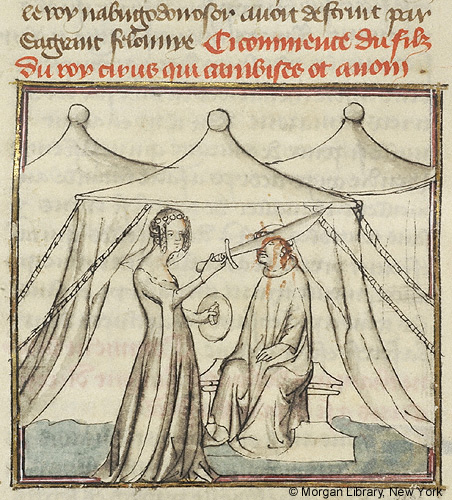 le roy nabugodonosor avoit destruit par
sa grant felonnye Ci commence du filz
du roy cirus qui cambises ot a nom
© Morgan Library, New York